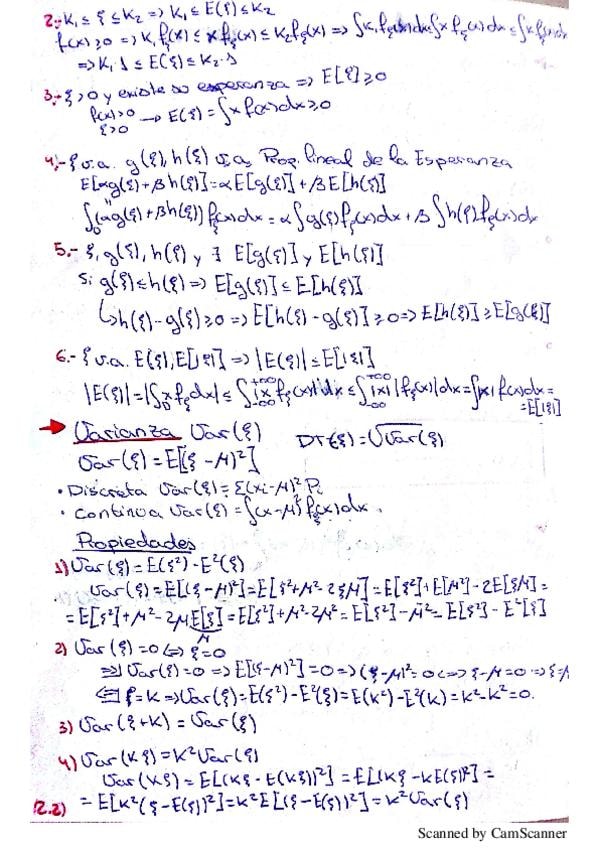 2.- K₁ ≤ ξ ≤ K₂ => K₁ ≤ E(ξ) ≤ K₂
f(x) ≥ 0 => K₁ fξ(x) ≤ x fξ(x) ≤ K₂ fξ(x) => ∫K₁ fξ(x)dx ≤ ∫x fξ(x)dx ≤ ∫K₂ fξ(x)dx
=> K₁·1 ≤ E(ξ) ≤ K₂·1
3.- ξ>0 y existe su esperanza => E[ξ] ≥ 0
f(x)>0
ξ>0 → E(ξ) = ∫x f(x)dx ≥ 0
4.- ξ v.a. g(ξ), h(ξ) v.as Prop. lineal de la Esperanza
E[αg(ξ)+βh(ξ)] = αE[g(ξ)] + βE[h(ξ)]
∫(αg(ξ)+βh(ξ)) fξ(x)dx = α∫g(ξ)fξ(x)dx + β∫h(ξ)fξ(x)dx
5.- ξ, g(ξ), h(ξ) y ∃ E[g(ξ)] y E[h(ξ)]
Si g(ξ) ≤ h(ξ) => E[g(ξ)] ≤ E[h(ξ)]
↳ h(ξ) - g(ξ) ≥ 0 => E[h(ξ) - g(ξ)] ≥ 0 => E[h(ξ)] ≥ E[g(ξ)]
6.- ξ v.a. E(ξ), E[|ξ|] => |E(ξ)| ≤ E[|ξ|]
|E(ξ)| = |∫x fξ dx| ≤ ∫|x fξ(x)|dx ≤ ∫|x| |fξ(x)|dx = ∫|x| f(x)dx =
= E[|ξ|]
Varianza Var(ξ) DT(ξ) = √Var(ξ)
Var(ξ) = E[(ξ - μ)²]
• Discreta Var(ξ) = Σ(xi - μ)² Pi
• Continua Var(ξ) = ∫(x - μ)² fξ(x)dx.
Propiedades
1) Var(ξ) = E(ξ²) - E²(ξ)
Var(ξ) = E[(ξ - μ)²] = E[ξ² + μ² - 2ξμ] = E[ξ²] + E[μ²] - 2E[ξμ] =
= E[ξ²] + μ² - 2μE[ξ] = E[ξ²] + μ² - 2μ² = E[ξ²] - μ² = E[ξ²] - E²[ξ]
μ
2) Var(ξ) = 0 <=> ξ = 0
=>) Var(ξ) = 0 => E[(ξ - μ)²] = 0 => (ξ - μ)² = 0 <=> ξ - μ = 0 => ξ = μ
<=) ξ = K => Var(ξ) = E(ξ²) - E²(ξ) = E(K²) - E²(K) = K² - K² = 0.
3) Var(ξ + K) = Var(ξ)
4) Var(Kξ) = K² Var(ξ)
Var(Kξ) = E[(Kξ - E(Kξ))²] = E[(Kξ - KE(ξ))²] =
= E[K²(ξ - E(ξ))²] = K² E[(ξ - E(ξ))²] = K² Var(ξ)
2.2)
Scanned by CamScanner